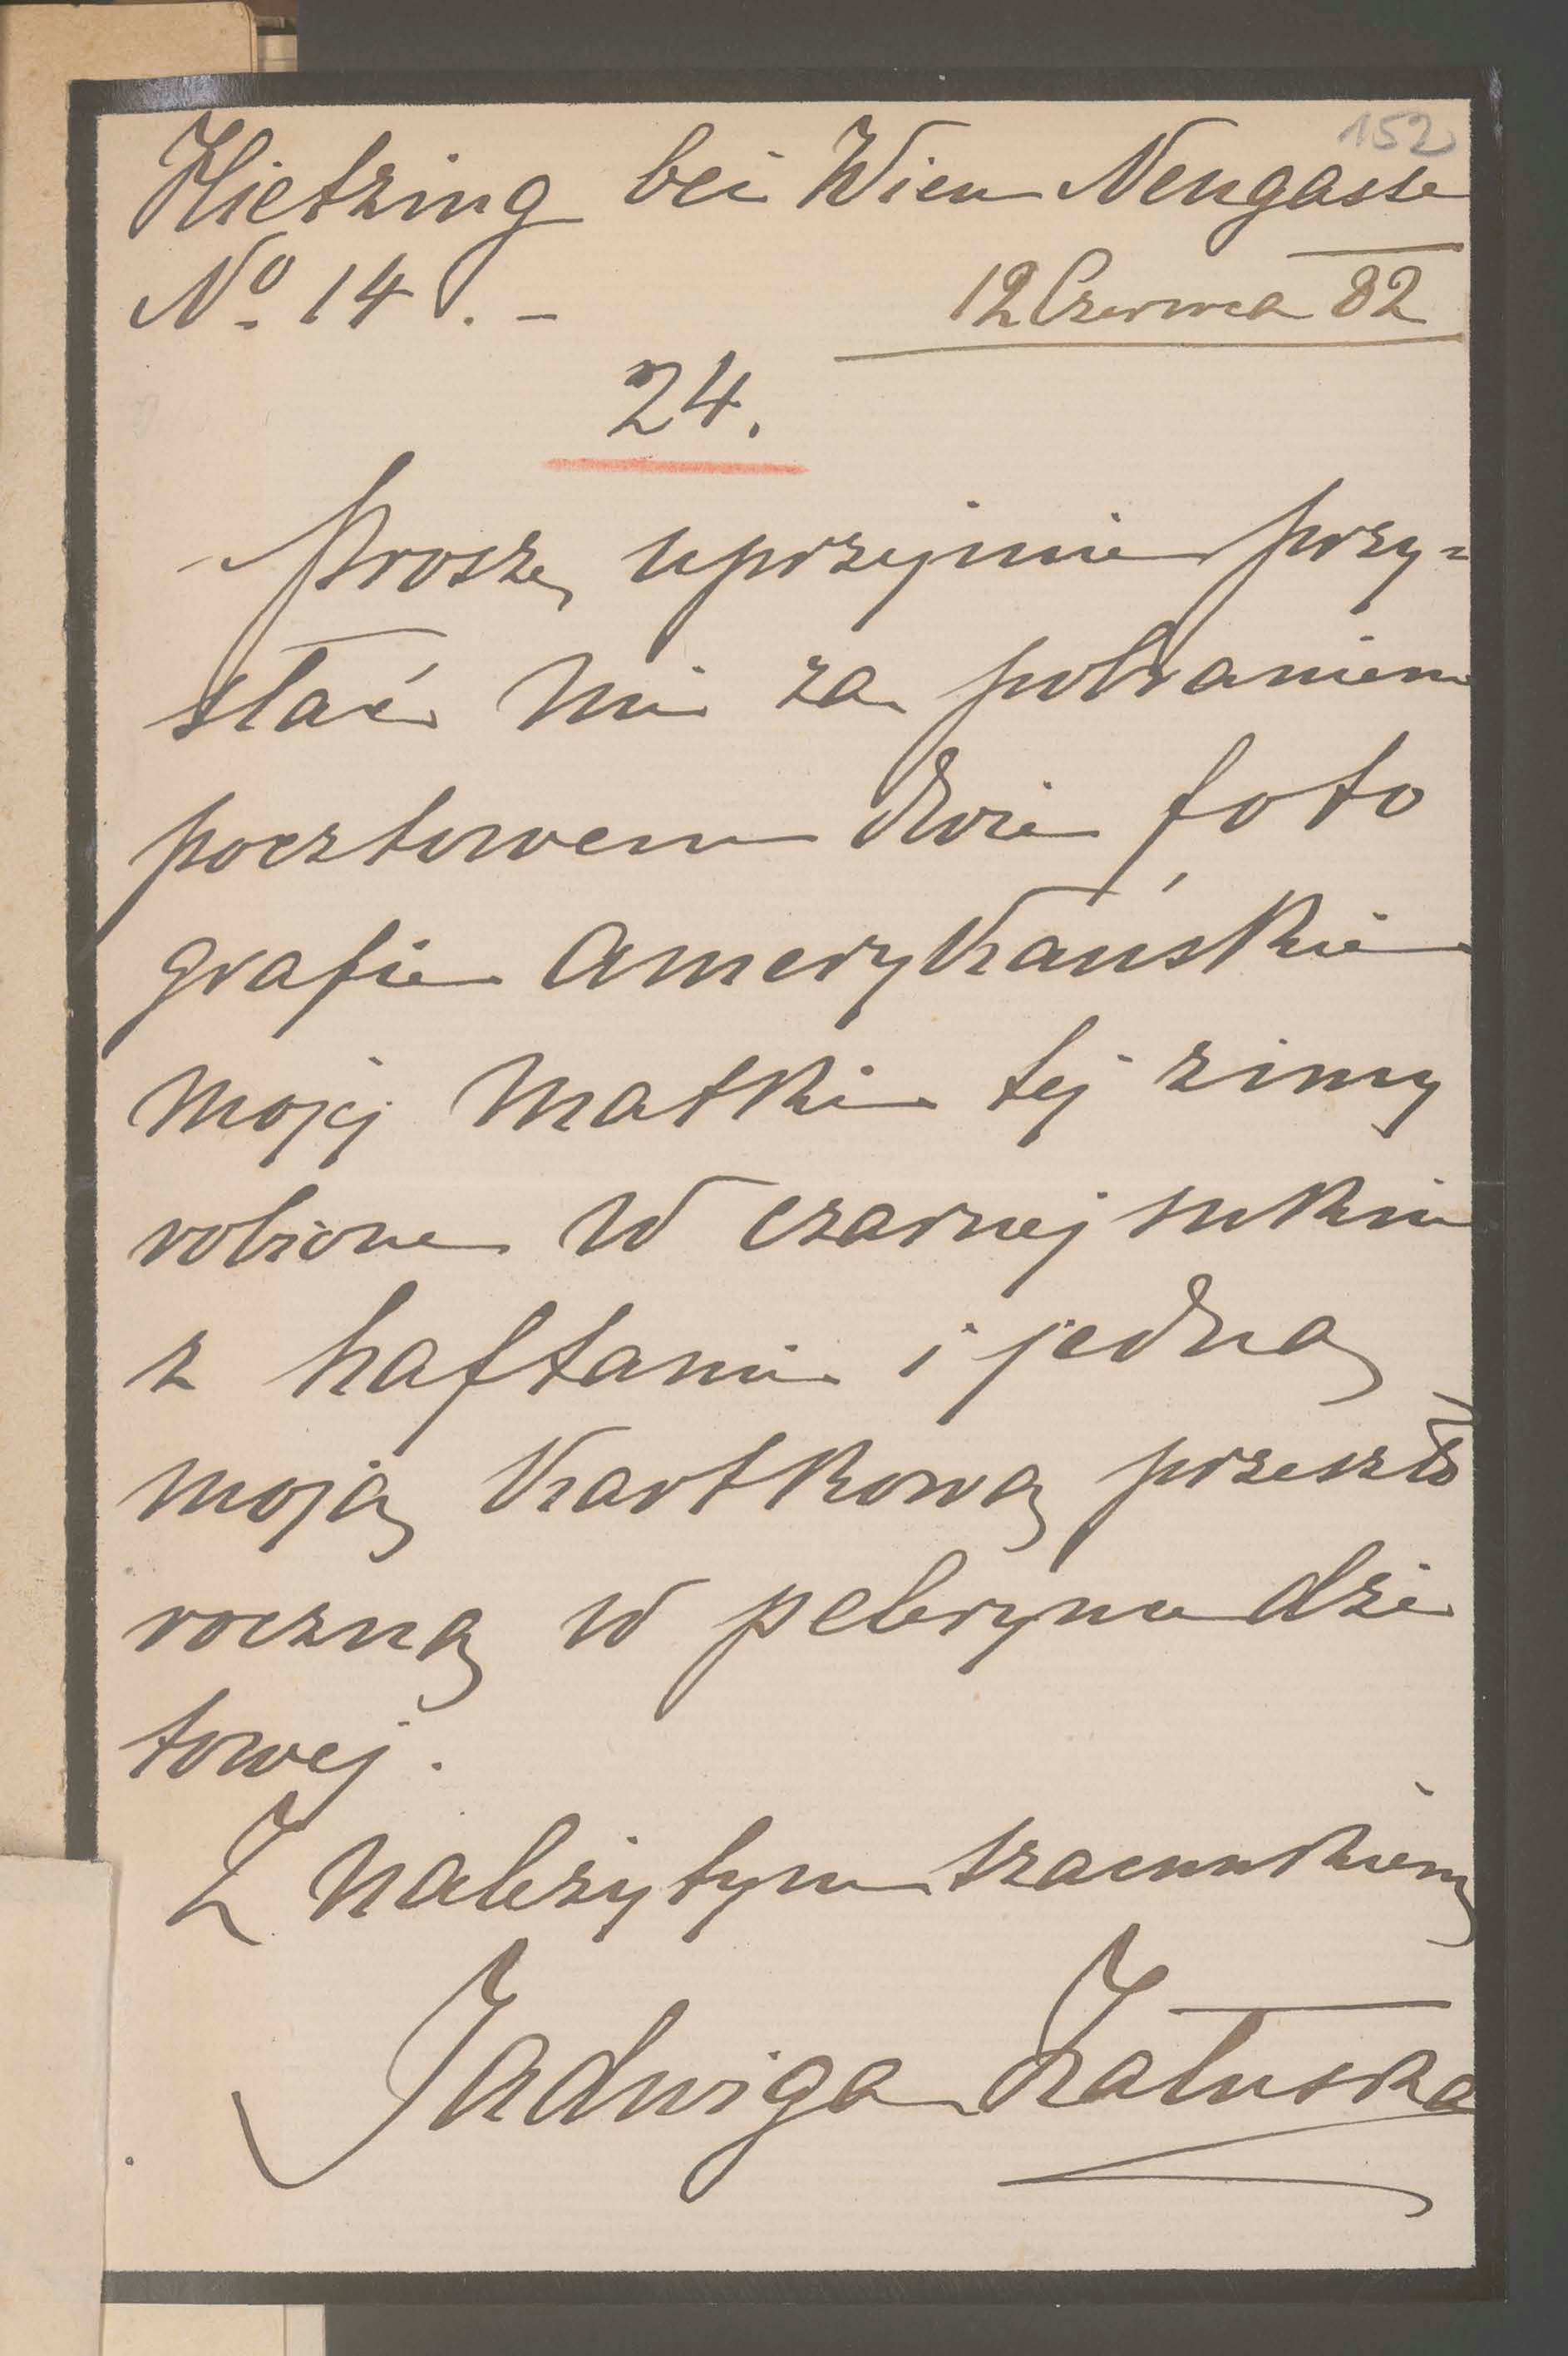 152
Hietzing bei Wien Neugasse
No. 14. –
12 Czerwca 82
24.
Proszę uprzejmie przy=
słać mi za pobraniem
pocztowem dwie foto
grafie Amerykańskie
mojej matki tej zimy
robione w czarnej sukni
z haftami i jedną
moją kartkową przeszło
roczną w pelerynie dże
towej.
Z należytym szacunkiem
Jadwiga Załuska